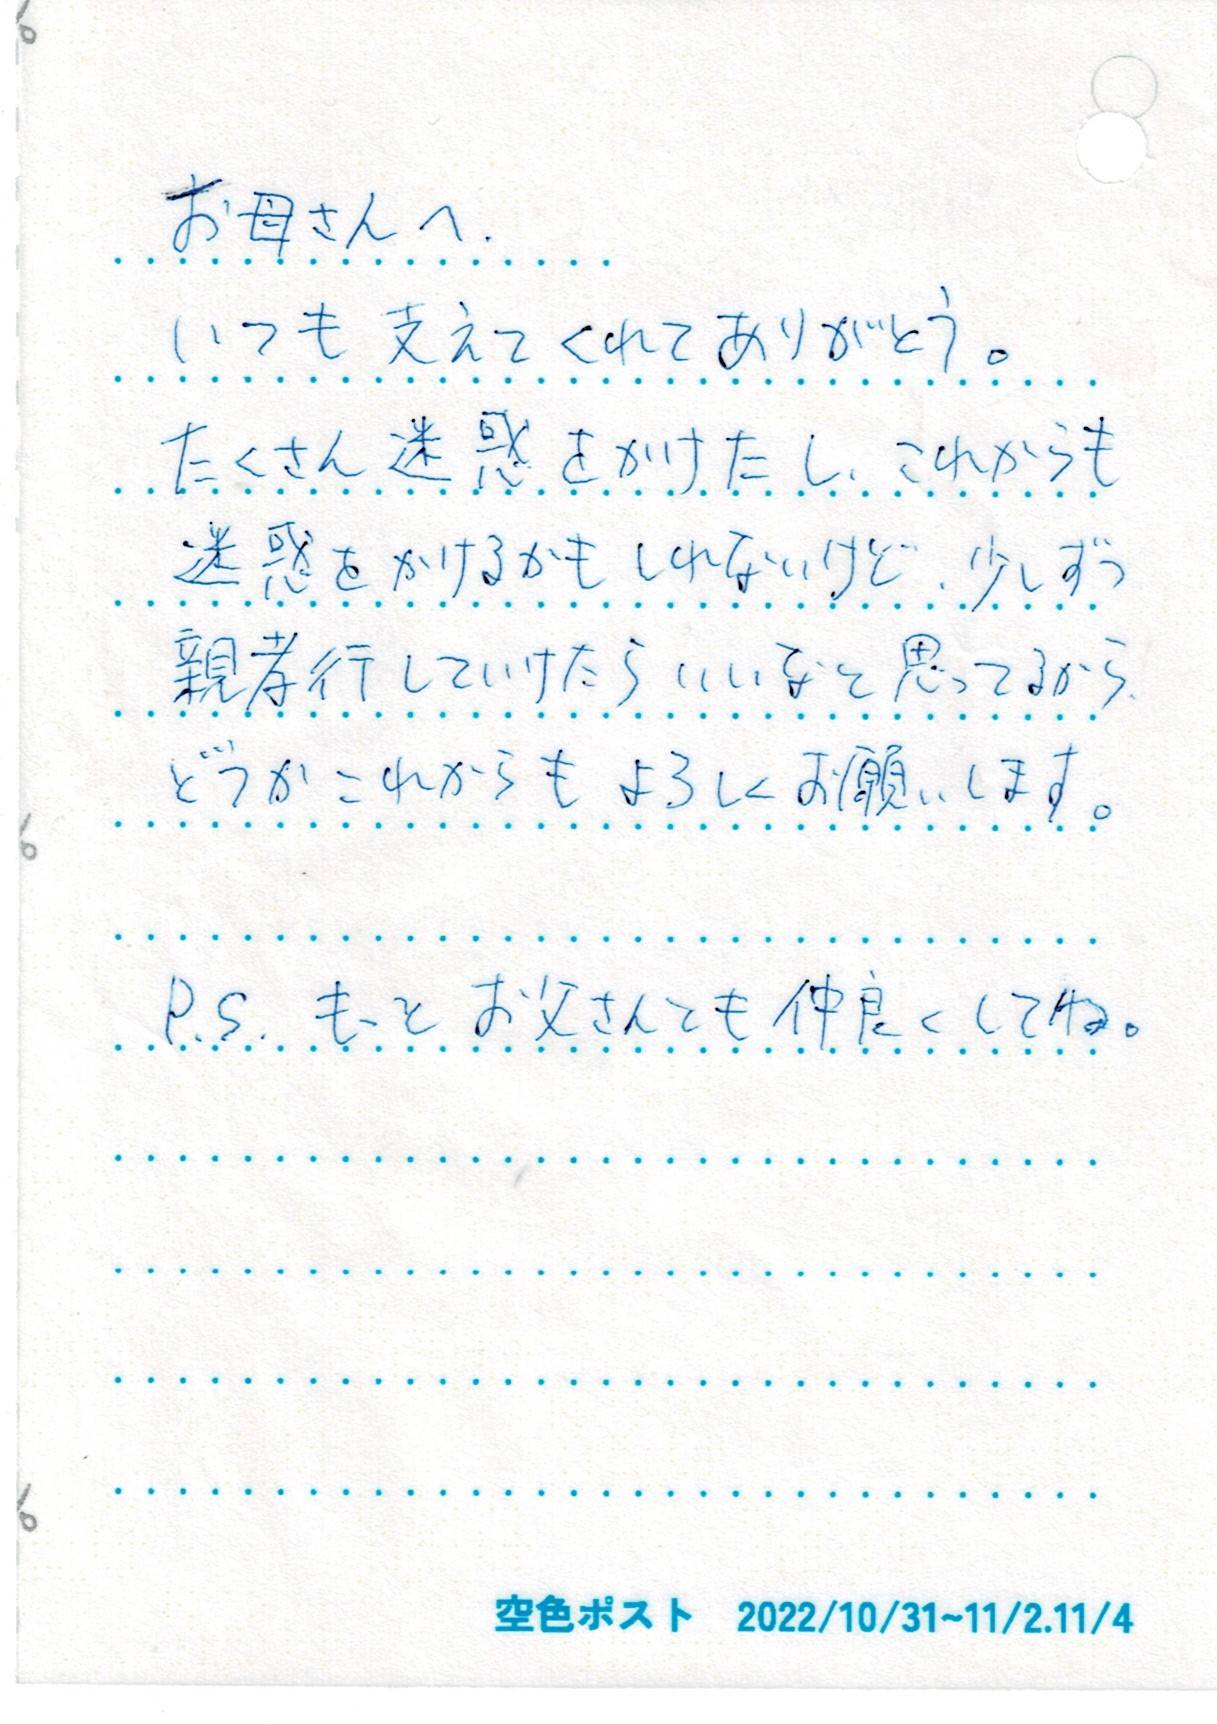 お母さんへ.
いつも支えてくれてありがとう。
たくさん迷惑をかけたし、これからも
迷惑をかけるかもしれないけど、少しずつ
親孝行していけたらいいなと思ってるから、
どうかこれからもよろしくお願いします。
P.S. もっとお父さんとも仲良くしてね。
空色ポスト 2022/10/31~11/2.11/4